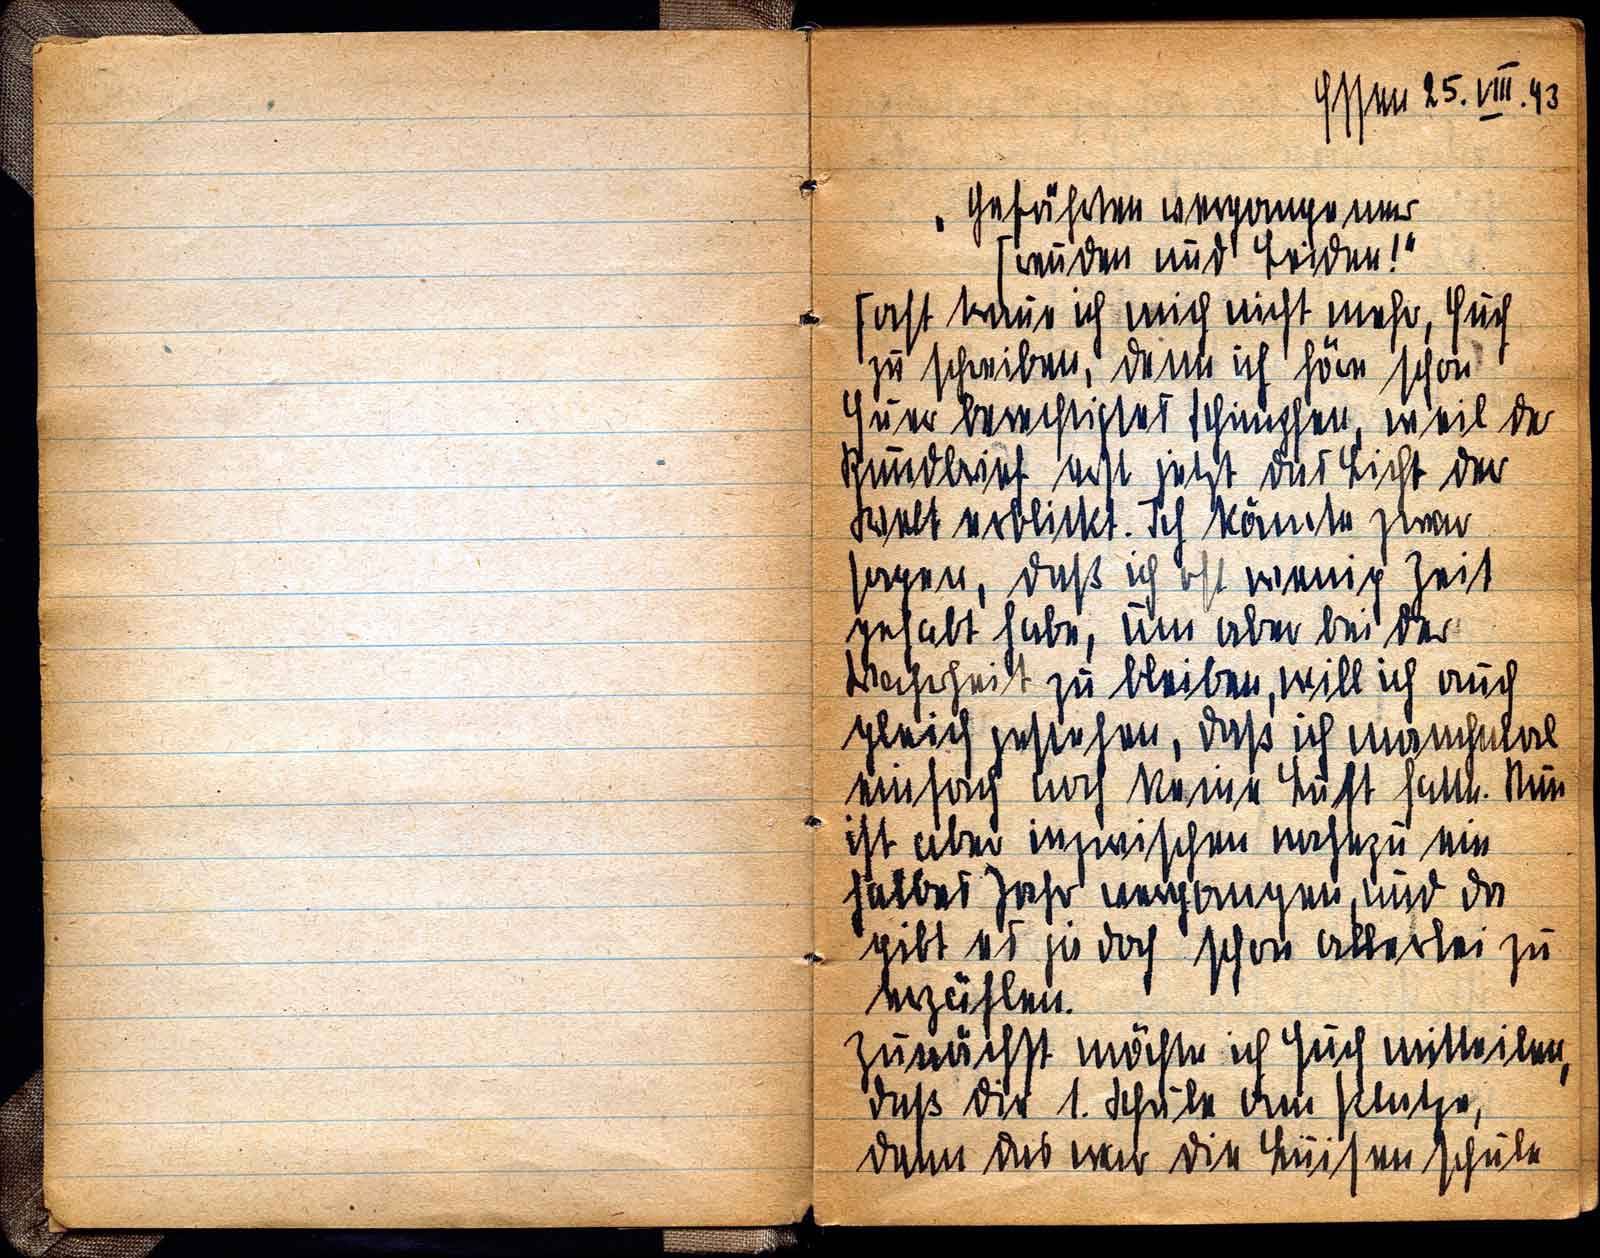 Essen 25. VIII. 43
„Gefährten vergangener
Freuden und Leiden!“
Fast traue ich mich nicht mehr, Euch
zu schreiben, denn ich höre schon
Euer berechtigtes Schimpfen, weil der
Rundbrief erst jetzt das Licht der
Welt erblickt. Ich könnte zwar
sagen, daß ich oft wenig Zeit
gehabt habe, um aber bei der
Wahrheit zu bleiben, will ich auch
gleich gestehen, daß ich manchmal
einfach noch keine Lust hatte. Nun
ist aber inzwischen nahezu ein
halbes Jahr vergangen, und da
gibt es ja doch schon allerlei zu
erzählen.
Zunächst möchte ich Euch mitteilen,
daß die 1. Schule am Platze,
denn das war die Luisenschule